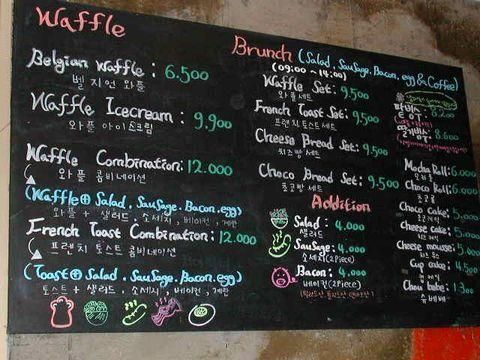 Waffle
Belgian Waffle : 6.500
벨지언 와플
Waffle Icecream : 9.900
와플 아이스크림
Waffle Combination : 12.000
와플 콤비네이션
(Waffle ⊕ Salad, Sausage, Bacon, egg)
와플 + 샐러드, 소세지, 베이컨, 계란
French Toast Combination : 12.000
프렌치 토스트 콤비네이션
(Toast ⊕ Salad, Sausage, Bacon, egg)
토스트 + 샐러드, 소세지, 베이컨, 계란
Brunch (Salad, Sausage, Bacon, egg & Coffee)
Waffle Set : 9.500
와플세트
French Toast Set : 9.500
프렌치토스트세트
Cheese Bread Set : 9.500
치즈빵세트
Choco Bread Set : 9.500
초코빵세트
Addition
Salad : 4.000
샐러드
Sausage : 4.000
소세지(2piece)
Bacon : 4.000
베이컨(2piece)
8.200
8.600
Mocha Roll : 6.000
모카롤
Choco Roll : 6.000
초코롤
Choco cake : 5.000
초코케익
Cheese cake : 5.000
치즈케익
Cheese mousse : 5.000
Cup cake :
컵케익
Chou cake : 1.300